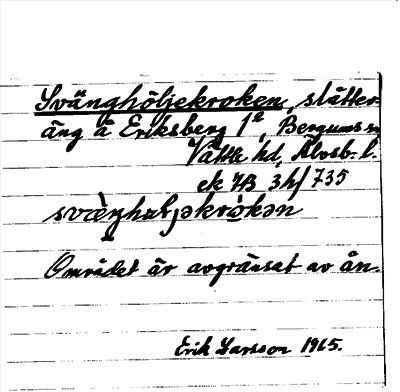 Svänghöljekroken, slåtter-
äng å Eriksberg 1e, Bergums sn
Vättle hd, Älvsb. l.
ek 7B 3h/735
svæ̀ŋhøl̥jəkrò̱kən
Området är avgränsat av ån.
Erik Larsson 1965.